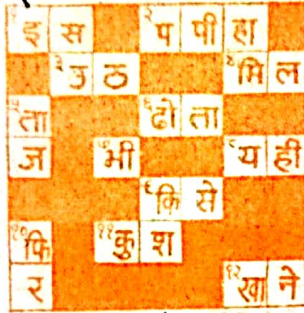 १ इ स २ प पी हा
३ उ ठ ४ मि ल
५ ता ६ ढो ता
ज ७ भी ८ य ही
९ कि से
१० फि ११ कु श
र १२ खा ने